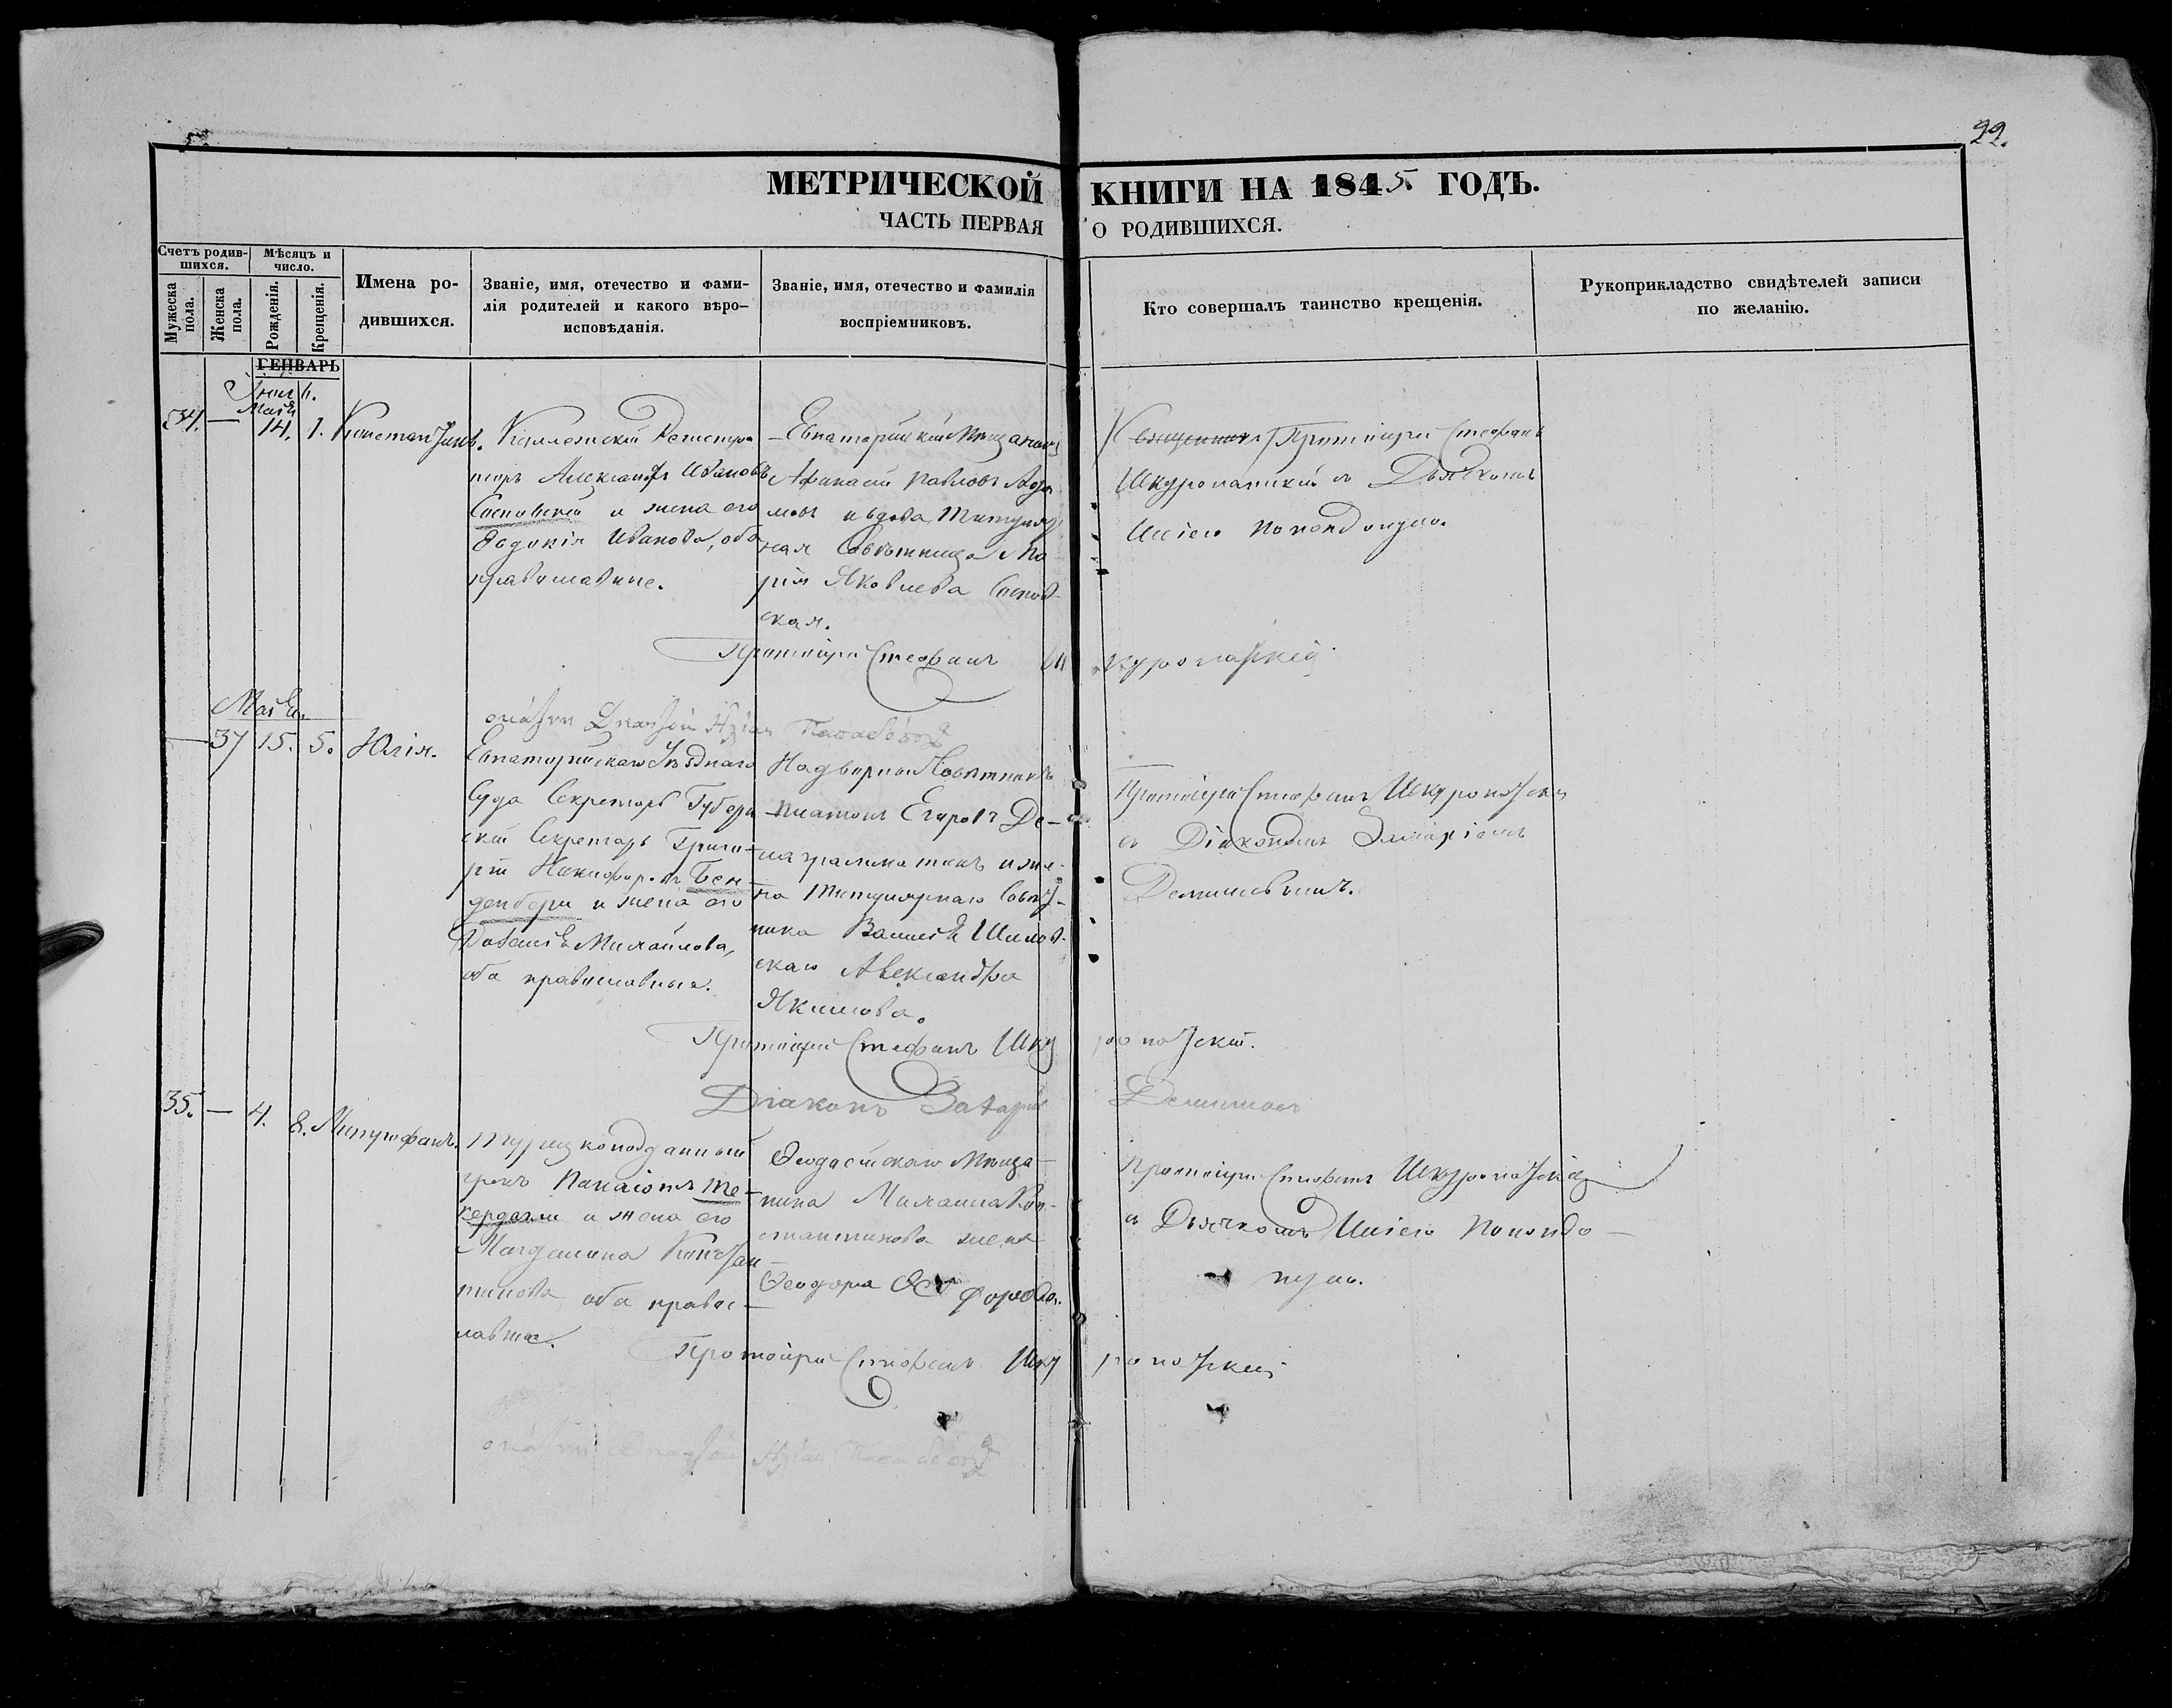 22.
МЕТРИЧЕСКОЙ КНИГИ НА 1845. ГОДЪ.
ЧАСТЬ ПЕРВАЯ О РОДИВШИХСЯ.
Счетъ родив-
шихся.
Мужеска пола.
Женска пола.
Мѣсяцъ и
число.
Рожденія.
Крещенія.
Имена ро-
дившихся.
Званіе, имя, отечество и фами-
лія родителей и какого вѣро-
исповѣданія.
Званіе, имя, отечество и фамилія
воспріемниковъ.
Кто совершалъ таинство крещенія.
Рукоприкладство свидѣтелей записи
по желанію.
ГЕНВАРЬ
Маія
34. — 14. 1. Константинъ.
Коллежскій Регистра
торъ Александръ Ивановъ
Сосновскій и жена его
Евдокія Иванова, оба
православные.
Евпаторійскій Мещанинъ
Афанасій Павловъ
и вдова Титуляр
ная Совѣтница Ма
рія Яковлева Соснов-
ская.
Протоіерей Стефанъ
Шкуропатскій съ Дьячкомъ
Протоіерей Стефанъ Шкуропатскій
Маія
— 37 15. 5. Юлія.
Евпаторійскаго Уѣзднаго
Суда Секретарь Губерн
скій Секретарь Григо-
рій Никифоровъ Бен
дебери и жена его
Михайлова,
оба православные.
Надворный Совѣтникъ
Платонъ Егоровъ Де-
лаграматикъ и же-
на Титулярнаго Совѣт-
ника Василія Шилов-
скаго Александра
Якимова.
Протоіерей Стефанъ Шкуропатскій
съ Діакономъ Захаріемъ
Протоіерей Стефанъ Шкуропатскій.
Діаконъ Захарій
35. — 4. 8.
Турецкоподданный
грекъ Панаіотъ Те-
кердагли и жена его
Магдалина Констан
тинова оба правос-
лавные.
Ѳеодосійскаго Меща-
нина Михаила Кон-
стантинова жена
Ѳеодора
Протоіерей Стефанъ Шкуропатскій
съ Дьячкомъ
Протоіерей Стефанъ Шкуропатскій